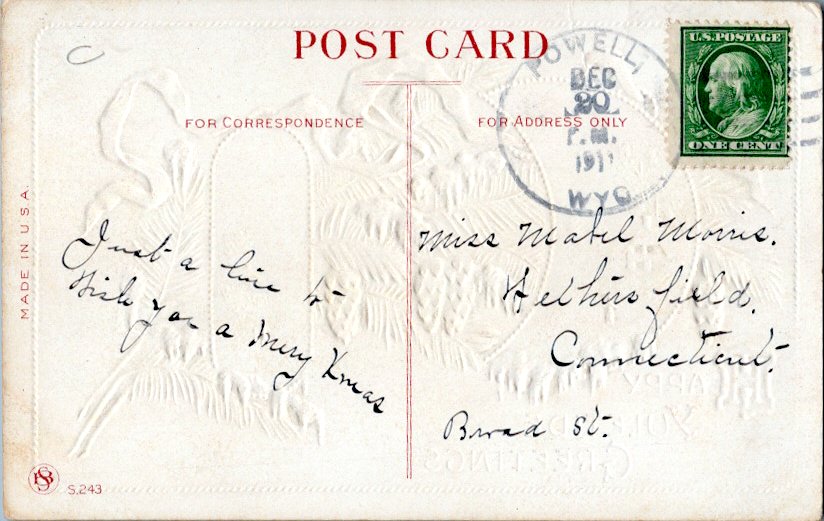 POST CARD
FOR CORRESPONDENCE
FOR ADDRESS ONLY
POWELL,
DEC
20
P.M.
1911
WYO.
U.S. POSTAGE
ONE CENT
MADE IN U.S.A.
Just a line to
Wish you a Merry Xmas
Miss Mabel Morris.
Wethersfield,
Connecticut.
Broad St.
YULE
GREETINGS
BSB
S.243